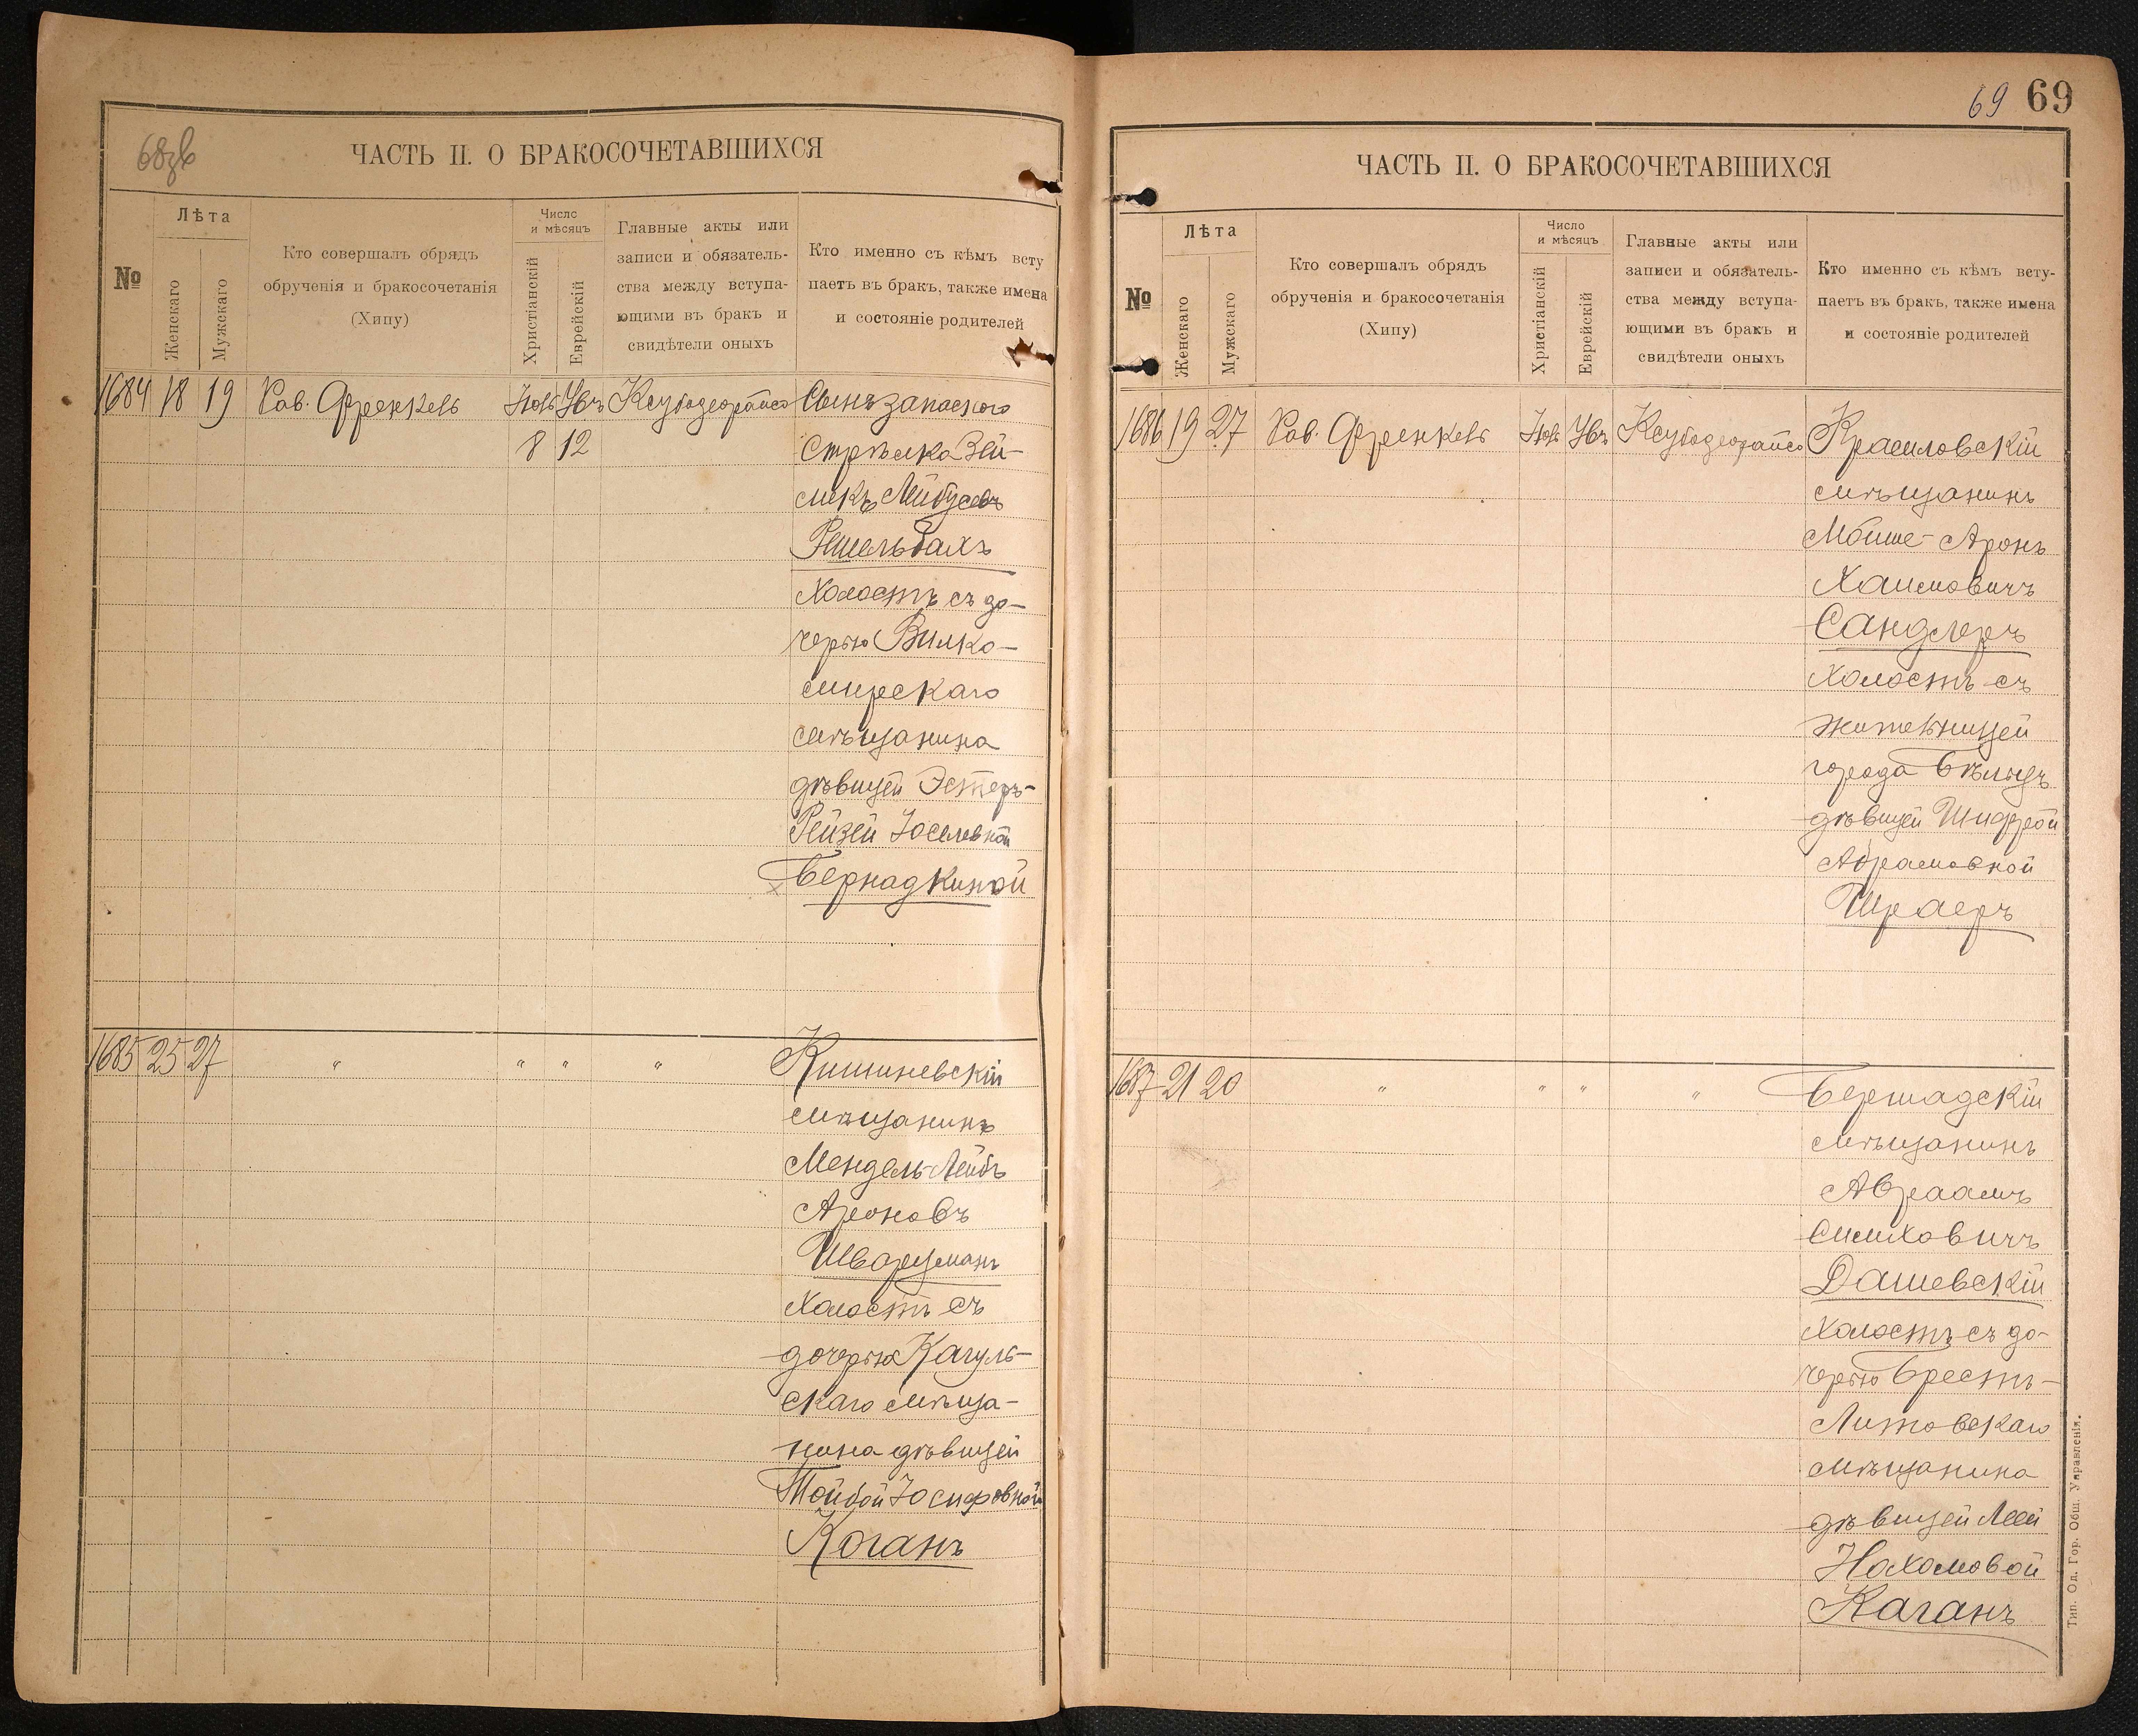 68зв
ЧАСТЬ II. О БРАКОСОЧЕТАВШИХСЯ
№
Лѣта
Женскаго
Мужскаго
Кто совершалъ обрядъ
обрученія и бракосочетанія
(Хипу)
Число
и мѣсяцъ
Христіанскій
Еврейскій
Главные акты или
записи и обязатель-
ства между вступа-
ющими въ бракъ и
свидѣтели оныхъ
Кто именно съ кѣмъ всту
паетъ въ бракъ, также имена
и состояніе родителей
1684 18 19 Рав. Френкель
8 12
Сынъ запаснаго
стрѣлка Зей-
ликъ Лейбусевъ
холостъ съ до-
черью Вилко-
мирскаго
мѣщанина
дѣвицей Эстеръ-
Рейзей Іоселевной
Бернадкиной
1685 25 27 " " " "
Кишиневскій
мѣщанинъ
Мендель-Лейбъ
Ароновъ
Шварцманъ
холостъ съ
дочерью Кагуль-
скаго мѣща-
нина дѣвицей
Тойбой Іосифовной
Коганъ
69 69
ЧАСТЬ II. О БРАКОСОЧЕТАВШИХСЯ
№
Лѣта
Женскаго
Мужскаго
Кто совершалъ обрядъ
обрученія и бракосочетанія
(Хипу)
Число
и мѣсяцъ
Христіанскій
Еврейскій
Главные акты или
записи и обязатель-
ства между вступа-
ющими въ бракъ и
свидѣтели оныхъ
Кто именно съ кѣмъ всту-
паетъ въ бракъ, также имена
и состояніе родителей
1686 19 27 Рав. Френкель
Красиловскій
мѣщанинъ
Мойше-Аронъ
Хаимовичъ
Сандлеръ
холостъ съ
жительницей
города Бѣльцъ
дѣвицей Шифрой
Абрамовной
Шраеръ
1687 21 20 " " " "
Бершадскій
мѣщанинъ
Авраамъ
Симховичъ
Дашевскій
холостъ съ до-
черью Брестъ-
Литовскаго
мѣщанина
дѣвицей Леей
Нахамовой
Каганъ
Тип. Од. Гор. Общ. Управленія.